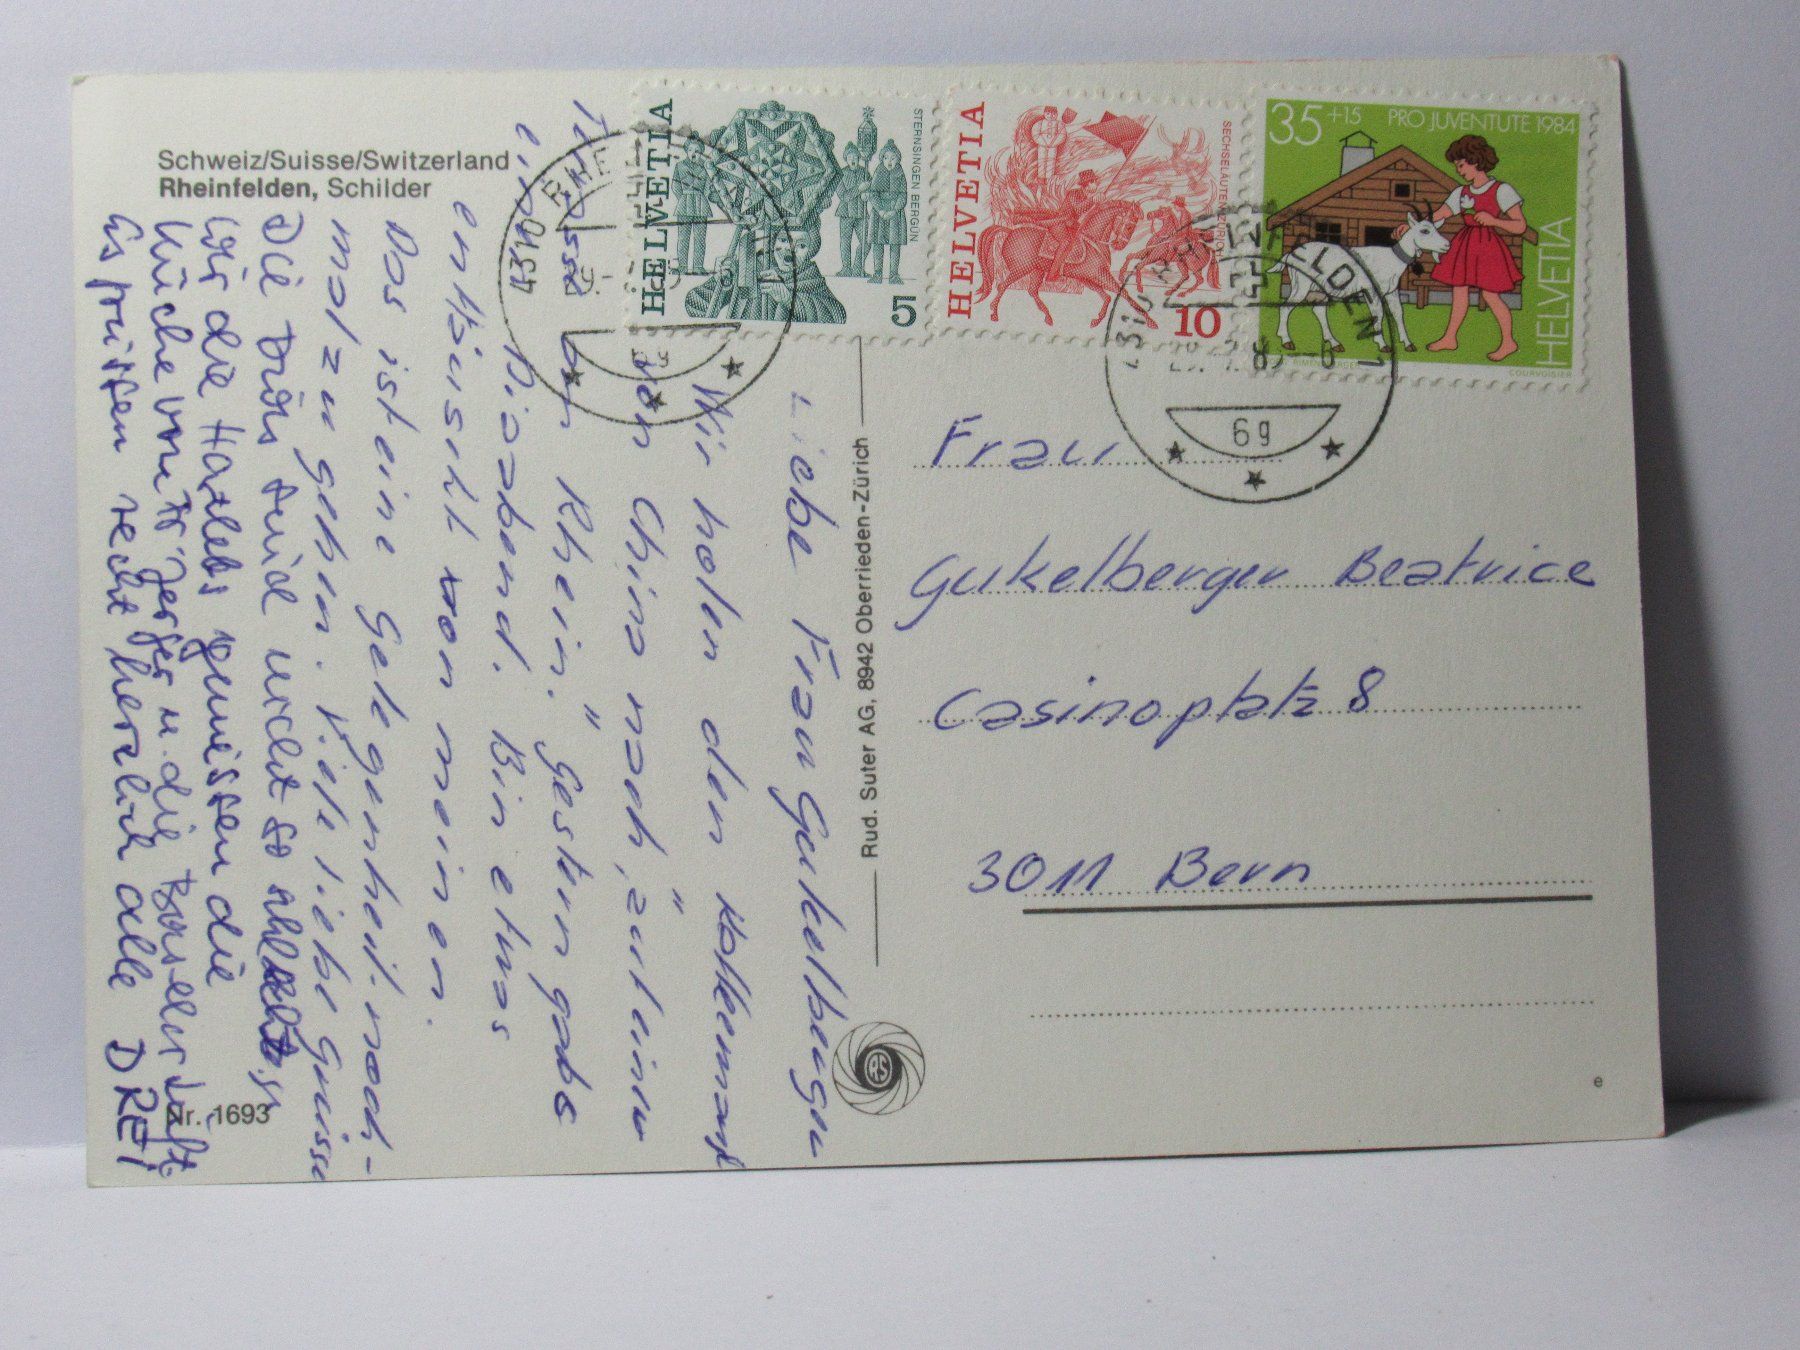 Schweiz/Suisse/Switzerland
Rheinfelden, Schilder
HELVETIA
STERNSINGEN BERGÜN
5
HELVETIA
SECHSELÄUTEN ZÜRICH
10
35+15 PRO JUVENTUTE 1984
HELVETIA
COURVOISIER
4310 RHE
4310 RHEINFELDEN 1
6g
Frau
Gukelberger Beatrice
Casinoplatz 8
3011 Bern
Rud. Suter AG, 8942 Oberrieden-Zürich
RS
e
Liebe Frau Gukelberger
Wir holen den
von China nach, "
Terrasse am Rhein." Gestern gabs
ein Diaabend. Bin etwas
enttäuscht von meinen.
Das ist eine Gelegenheit noch-
mal zu gehen. Viele liebe Grüsse
Die Dias sind nicht so schlecht
wir die geniessen die
Küche von u. die Basler Luft.
Es grüssen recht herzlich alle DREI
Nr. 1693